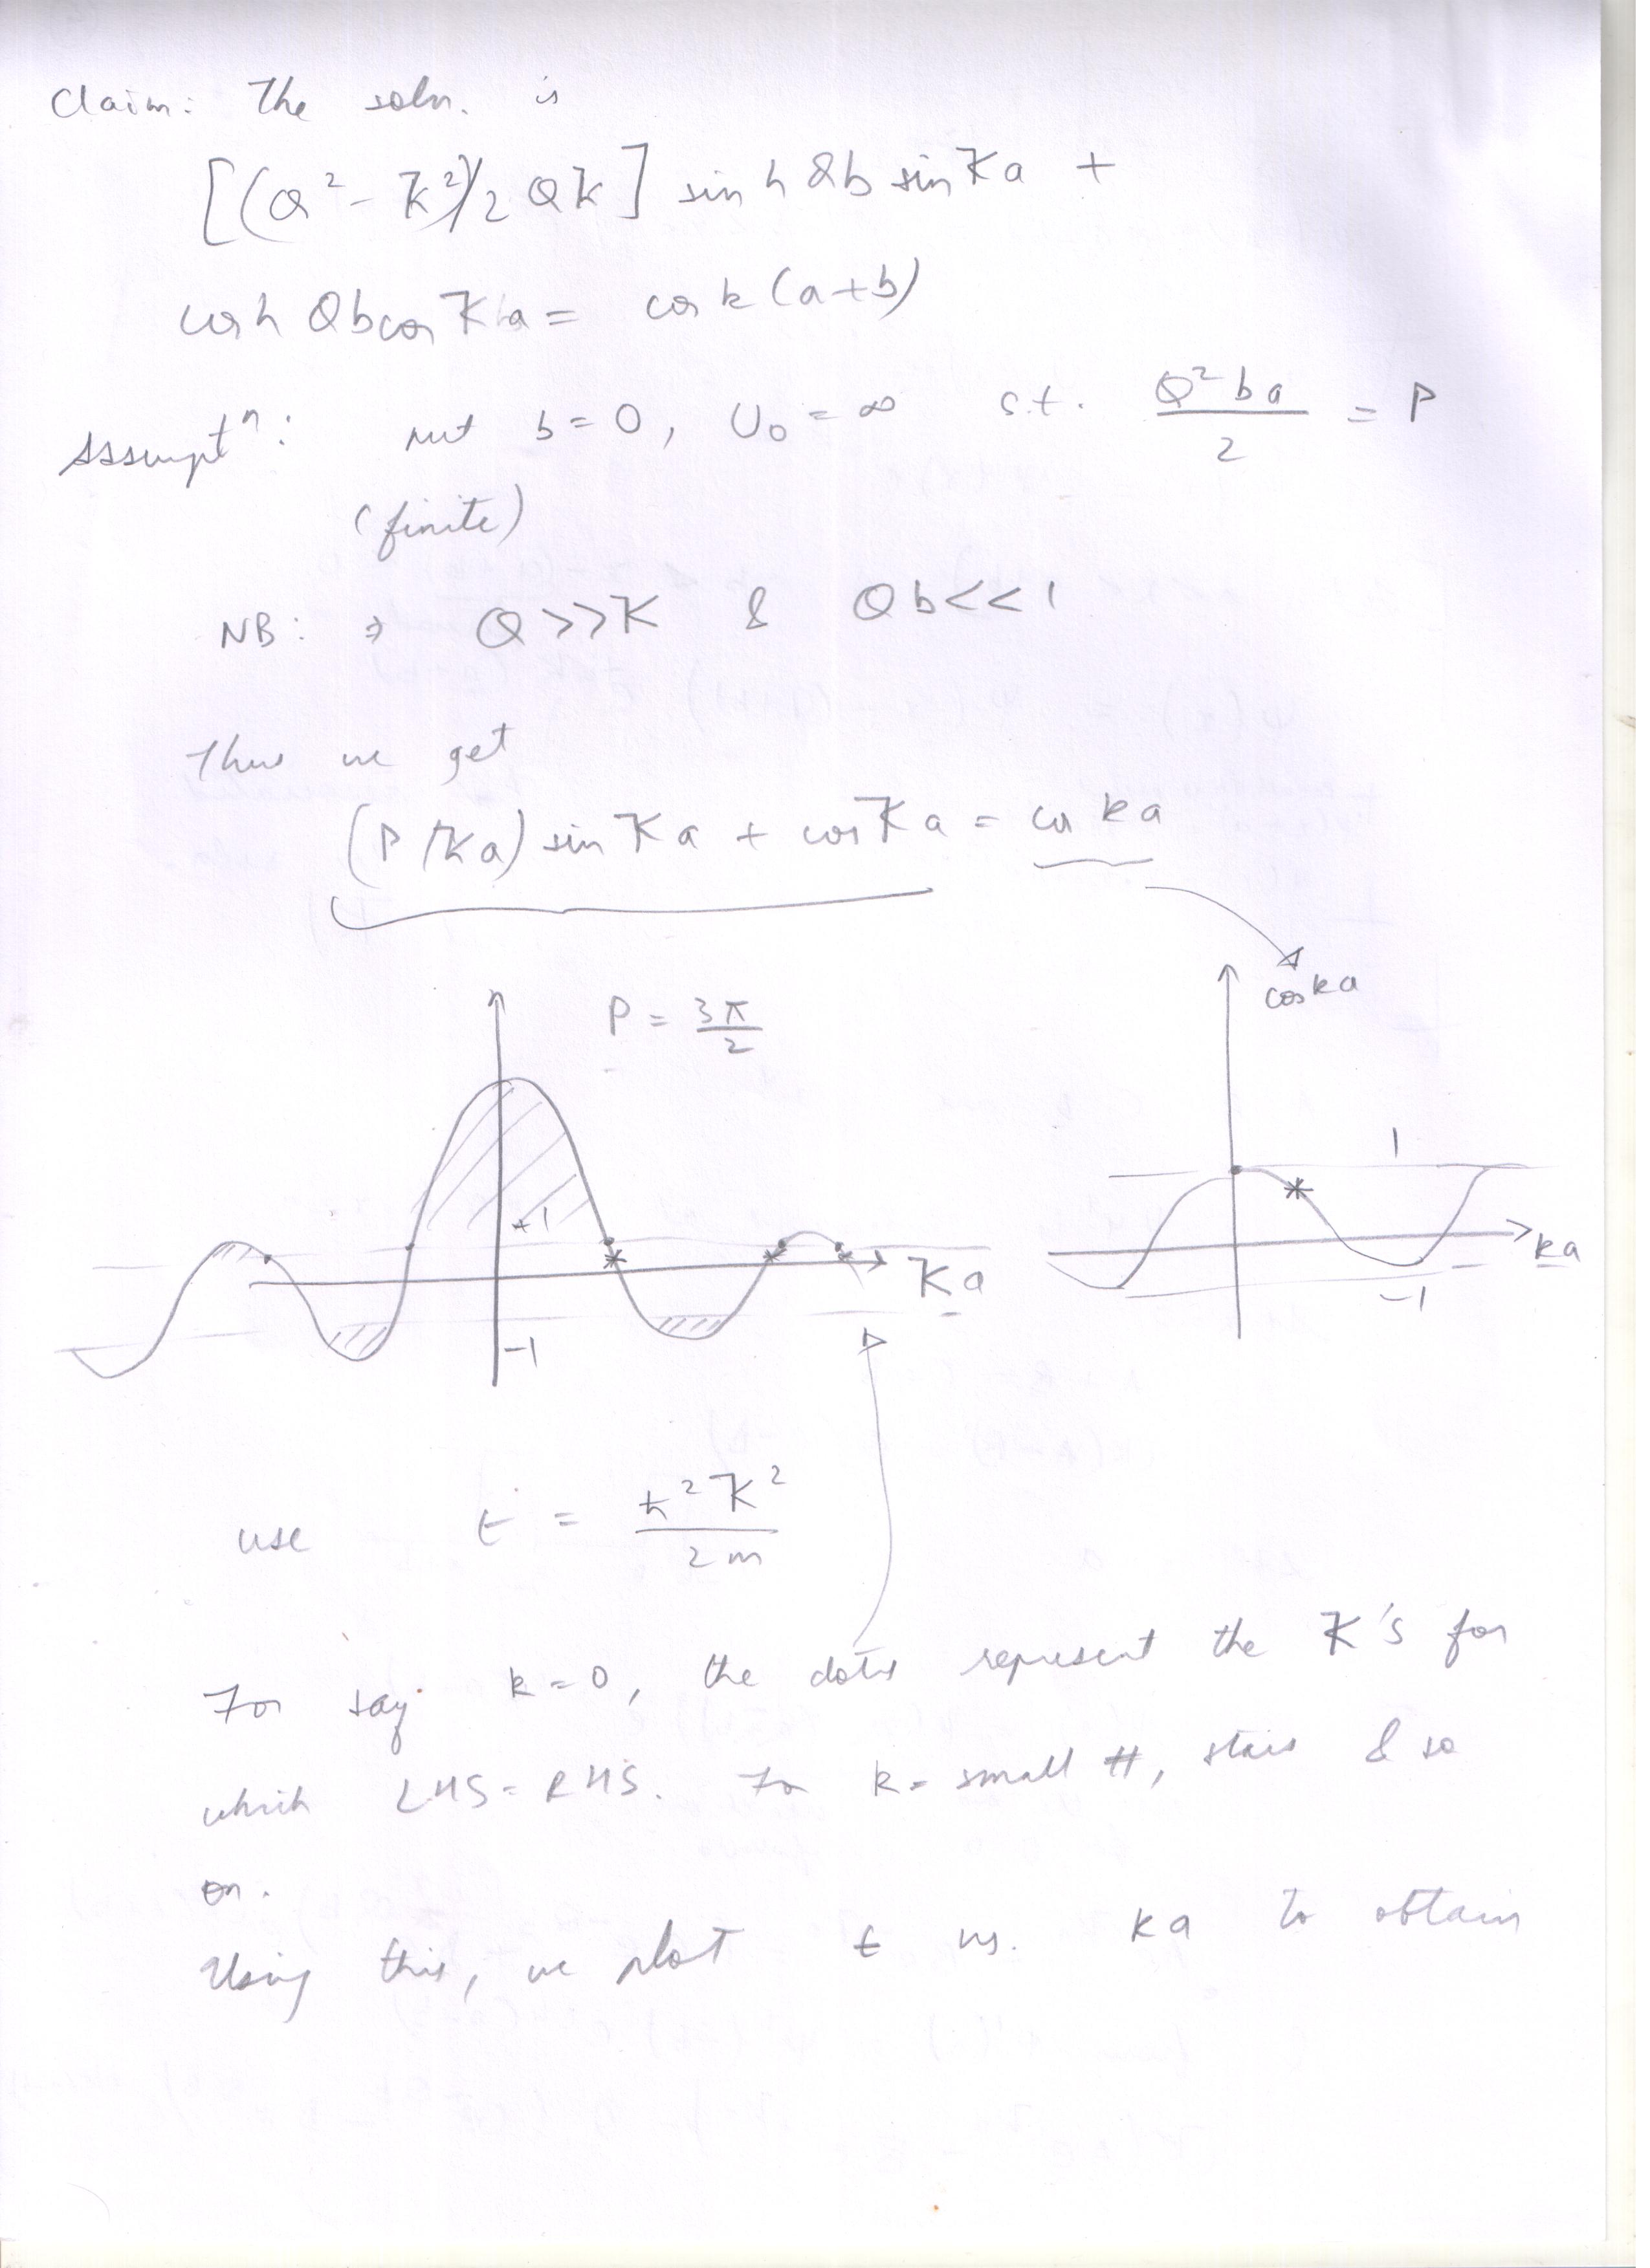 Claim: The soln. is
[(Q² - K²)/2QK] sinh Qb sin Ka +
cosh Qb cos Ka = cos k(a+b)
Assumptⁿ: put b=0, U₀ = ∞ s.t. Q²ba/2 = P
(finite)
NB: ⇒ Q>>K & Qb<<1
Thus we get
(P/Ka) sin Ka + cos Ka = cos ka
cos ka
P = 3π/2
1
+1
ka
Ka
-1
-1
use ϵ = ħ²K²/2m
For say k=0, the dots represent the K's for
which LHS=RHS. For k= small #, stars & so
on.
Using this, we plot ϵ vs. ka to obtain